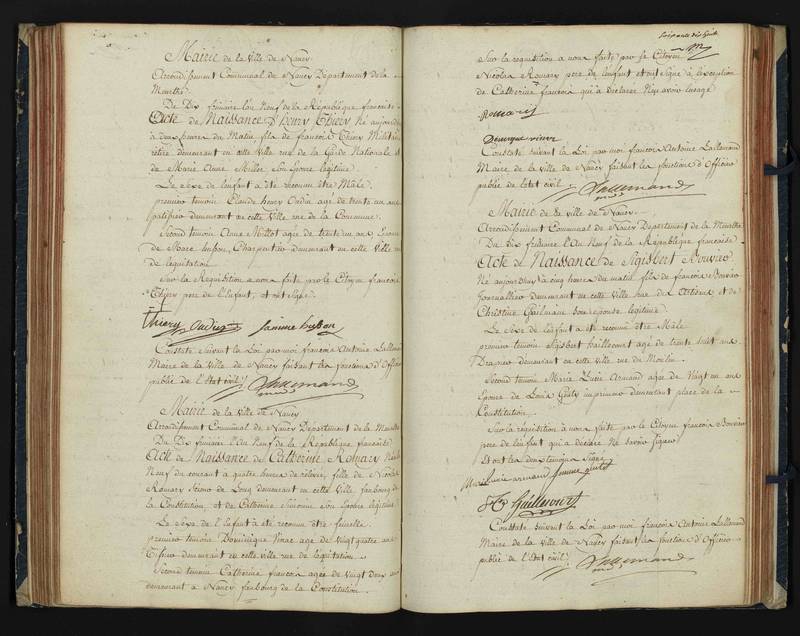 Mairie de la ville de Nancy
Arrondissement Communal de Nancy Département de la
Meurthe.
Du Dix frimaire l'an Neuf de la République française
Acte de Naissance D'henry Thiery Né aujourd'hui
à deux heures du Matin fils de françois Thiery Militaire
retiré demeurant en cette Ville rue de la Garde Nationale et
de Marie Anne Miller son Epouse légitime
Le Sexe de l'enfant a été reconnu être Mâle.
premier temoin Claude henry Oudin agé de trente un ans
patissier demeurant en cette Ville rue de la Commune.
Second temoin Anne Millot agée de trente un ans Epouse
de Marc husson, Charpentier demeurant en cette Ville rue
de l'equitation
Sur la Requisition a nous faite par le Citoyen françois
Thiery pere de l'Enfant, et ont Signé.
Thiery Oudin femme husson
Constaté Suivant la Loi par moi françois Antoine Lallemand
Maire de la Ville de Nancy faisant les fonctions d'Officier
public de l'Etat civil.
Lallemand
Mairie de la Ville de Nancy
Arrondissement Communal de Nancy Departement de la Meurthe
Du Dix frimaire l'An Neuf de la République française
Acte de Naissance de Catherine Romary Née le
Neuf du courant a quatre heures de relevée, fille de Nicolas
Romary Scieur de Long demeurant en cette Ville faubourg de
la Constitution, et de Catherine Son Epouse légitime
Le Sexe de l'Enfant a été reconnu être femelle
premier temoin Dominique agé de vingt quatre ans
demeurant en cette ville rue de l'equitation.
Second temoin Catherine francois agée de Vingt deux ans
demeurant a Nancy faubourg de la Constitution.
Soixante dix huit
Sur la requisition a nous faite par le Citoyen
Nicolas Romary pere de l'enfant et ont Signé a l'exception
de Catherine francois qui a declaré N'en avoir l'usage
Romary
Constaté suivant la Loi par moi françois Antoine Lallemand
Maire de la Ville de Nancy faisant les fonctions d'Officier
public de l'etat civil.
Lallemand
Mairie de la ville de Nancy.
Arrondissement Communal de Nancy Departement de la Meurthe
Du Dix frimaire l'An Neuf de la République française.
Acte de Naissance de Sigisbert Bouvier
Né aujourdhuy a cinq heures du matin fils de françois Bouvier
Journallier demeurant en cette Ville rue des Artisans et de
Christine Gailmain son epouse légitime.
Le Sexe de l'enfant a été reconnu être Mâle
premier temoin Sigisbert haillecourt agé de trente huit ans
Drapier demeurant en cette ville rue du Moulin.
Second temoin Marie Lucie Armand agée de Vingt un ans
Epouse de Louis imprimeur demeurant place de la
Constitution.
Sur la réquisition a nous faite par le Citoyen francois Bouvier
pere de l'enfant qui a declaré ne savoir signer
Et ont les deux témoins Signé
Marie lucie armand femme
Haillecourt
Constaté suivant la Loi par moi françois Antoine Lallemand
Maire de la ville de Nancy faisant les fonctions d'Officier
public de l'Etat civil.
Lallemand